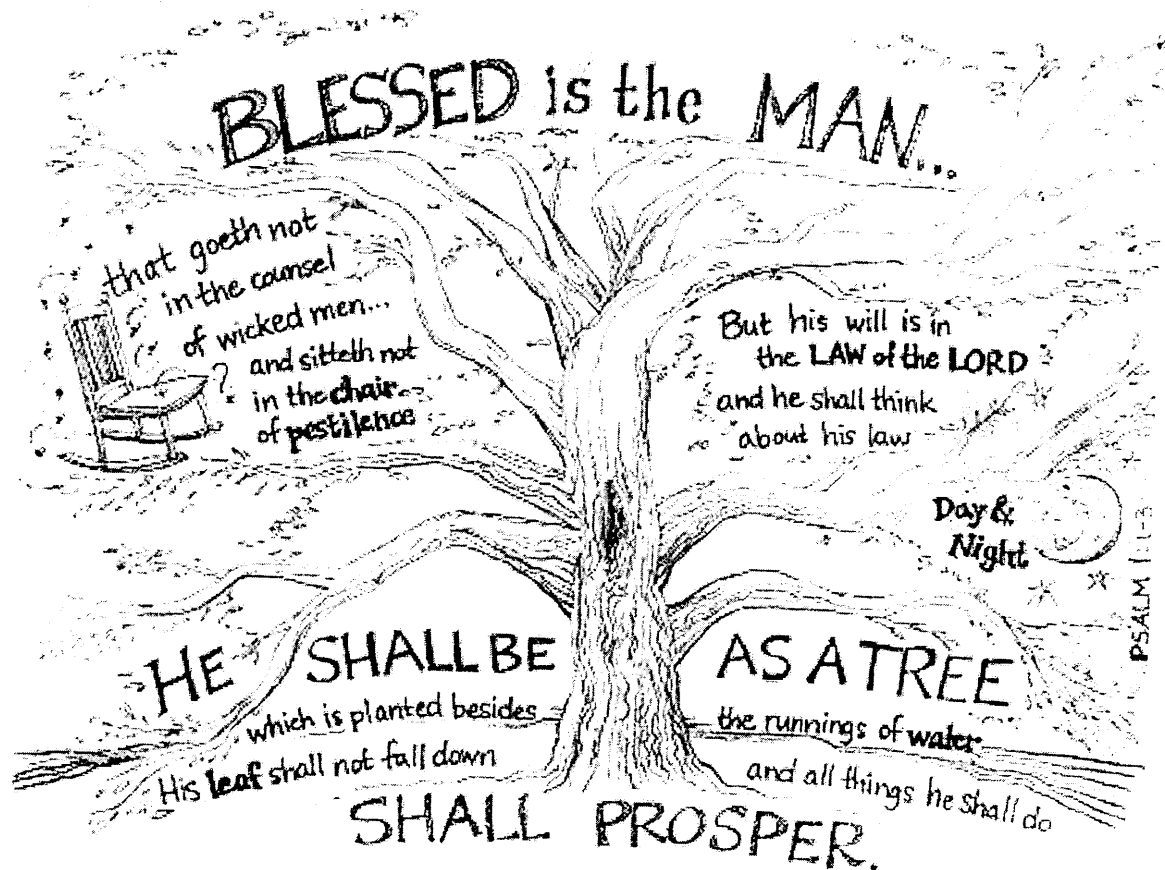 BLESSED is the MAN...
that goeth not
in the counsel
of wicked men...
and sitteth not
in the chair
of pestilence
?
But his will is in
the LAW of the LORD
and he shall think
about his law
Day &
Night
PSALM 1:1-3
HE SHALL BE AS A TREE
which is planted besides the runnings of water
His leaf shall not fall down and all things he shall do
SHALL PROSPER.